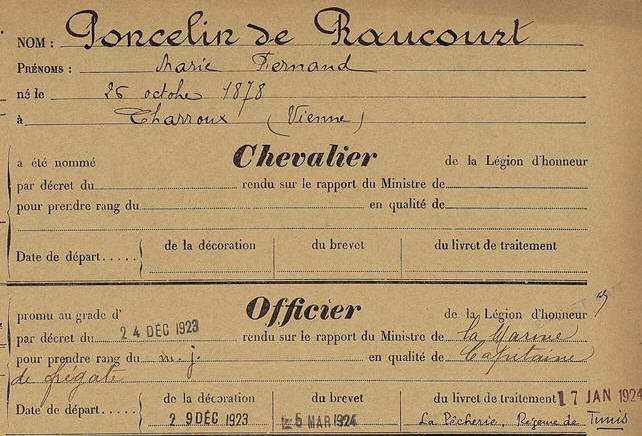 NOM : Poncelin de Raucourt
PRÉNOMS : Marie Fernand
né le 26 octobre 1878
à Charroux (Vienne)
a été nommé Chevalier de la Légion d'honneur
par décret du rendu sur le rapport du Ministre de
pour prendre rang du en qualité de
Date de départ..... de la décoration du brevet du livret de traitement
promu au grade d' Officier de la Légion d'honneur
par décret du 24 DÉC 1923 rendu sur le rapport du Ministre de la Marine
pour prendre rang du m. j. en qualité de Capitaine
de frégate
Date de départ..... de la décoration du brevet du livret de traitement 17 JAN 1924
29 DÉC 1923 5 MAR 1924 La Pêcherie, Régence de Tunis